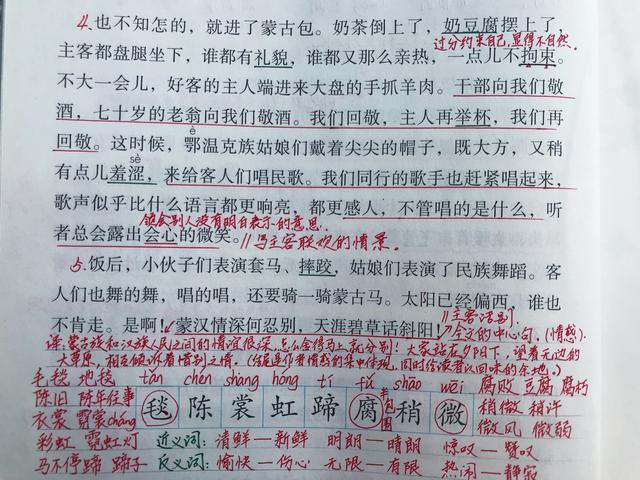 4.也不知怎的，就进了蒙古包。奶茶倒上了，奶豆腐摆上了，
过分约束自己，显得不自然。
主客都盘腿坐下，谁都有礼貌，谁都又那么亲热，一点儿不拘束。
不大一会儿，好客的主人端进来大盘的手抓羊肉。干部向我们敬
酒，七十岁的老翁向我们敬酒。我们回敬，主人再举杯，我们再
回敬。这时候，鄂温克族姑娘们戴着尖尖的帽子，既大方，又稍
è
有点儿羞涩，来给客人们唱民歌。我们同行的歌手也赶紧唱起来，
sè
歌声似乎比什么语言都更响亮，都更感人，不管唱的是什么，听
领会别人没有明白表示的意思。
者总会露出会心的微笑。//写主客联欢的情景。
5.饭后，小伙子们表演套马、摔跤，姑娘们表演了民族舞蹈。客
人们也舞的舞，唱的唱，还要骑一骑蒙古马。太阳已经偏西，谁也
不肯走。是啊！蒙汉情深何忍别，天涯碧草话斜阳！
//主客话别
全文的中心句。(情感)
译:蒙古族和汉族人民之间的情谊很深，怎么舍得马上就分别！大家站在夕阳下，望着无边的
大草原，相互倾诉着惜别之情。(结尾是作者情感的集中体现，同时给读者以回味的余地。)
毛毯 地毯 tǎn chén shang hóng tí fǔ shāo wēi 腐败 豆腐 腐朽
陈旧 陈年往事 毯 陈 裳 虹 蹄 腐 稍 微 稍微 稍许
半包围
衣裳 霓裳cháng 微风 微弱
彩虹 霓虹灯 近义词: 清鲜—新鲜 明朗—晴朗 惊叹—赞叹
马不停蹄 蹄子 反义词: 愉快—伤心 无限—有限 热闹—静寂